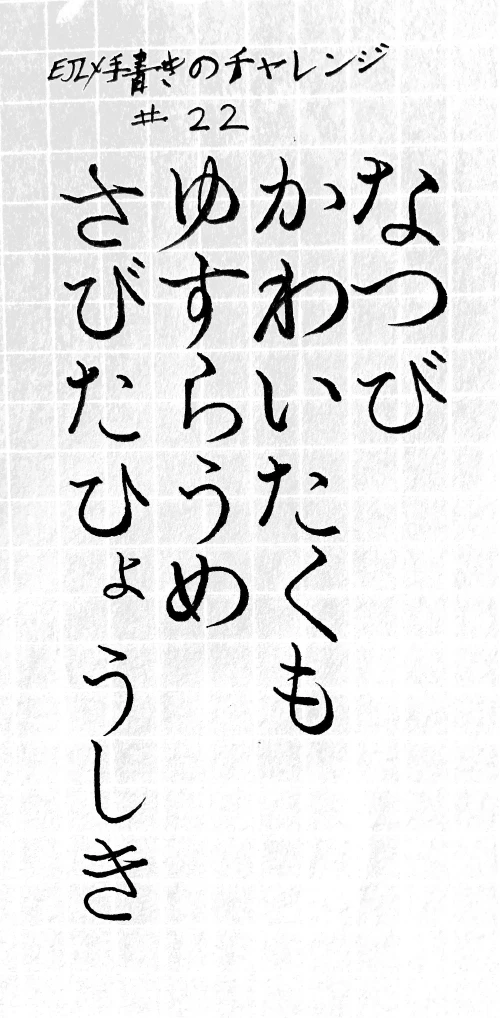 EJLX手書きのチャレンジ
# 22
なつび
かわいたくも
ゆすらうめ
さびたひょうしき